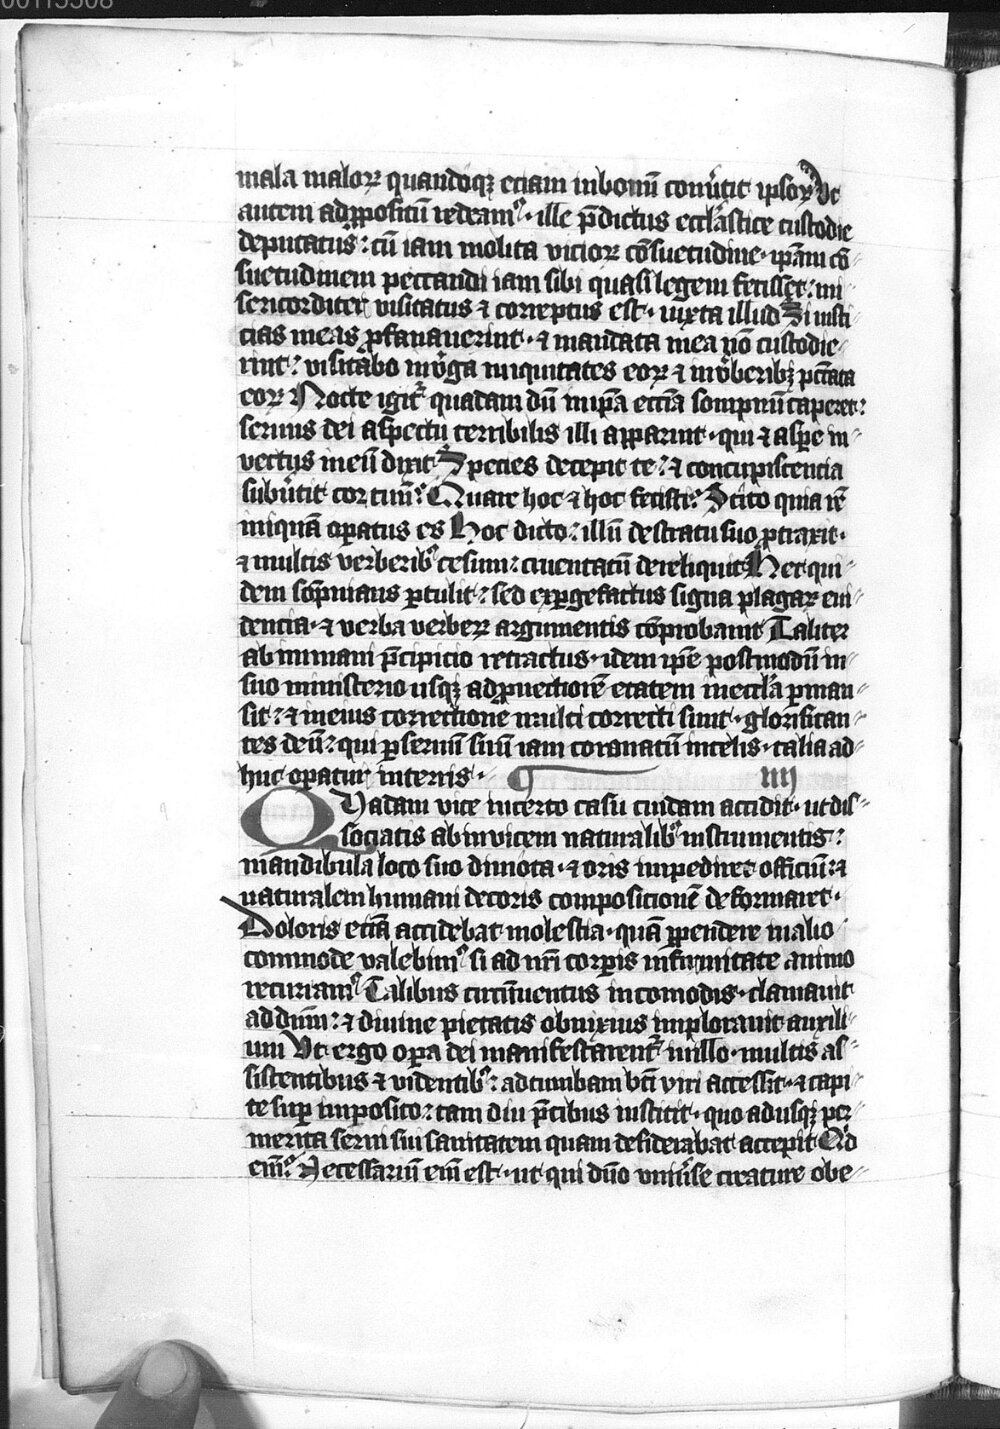 00115508
mala maloꝝ quandoqꝫ eciam in bonū conūtit ipsoꝝ Vt
autem ad ꝓpositū redeamꝰ· ille p̄dictus eccl̄astice custodie
deputatus: cū iam molita vicioꝝ cōsuetudine· ip̄am cō⸗
suetudinem peccandi iam sibi quasi legem fecisset: mi⸗
sericorditer visitatus ⁊ correptus est· iuxta illud Si iusti⸗
cias meas ꝓfanauerint· ⁊ mandata mea nō custodie⸗
rint: visitabo in v̄ga iniquitates eoꝝ ⁊ in v̄beribꝫ pcc̄ata
eoꝝ Nocte igit᷑ quadam dū in ip̄a ecc̄ia sompnū caperet:
seruus dei aspectu terribilis illi apparuit· qui ⁊ aspe in⸗
vectus in eū dixit Species decepit te: ⁊ concupiscencia
subūtit cor tuū: Quare hoc ⁊ hoc fecisti: Scito quia rē
iniquā oꝑatus es Hoc dicto: illū de stratu suo ꝓtraxit·
⁊ multis verberibꝰ cesum: cruentatū dereliquit Hec qui⸗
dem sōpnians ꝑtulit: sed exꝑgefactus signa plagaꝝ eui⸗
dencia· ⁊ verba verbeꝝ argumentis cōprobauit Taliter
ab inmani p̄cipicio retractus· idem ip̄e postmodū in⸗
suo ministerio usqꝫ ad ꝓuectiorē etatem in eccl̄a ꝑman⸗
sit: ⁊ in eius correctione multi correcti sunt· glorifican⸗
tes deū: qui ꝑ seruū suū iam coronatū in celis· talia ad⸗
huc oꝑatur in terris· IIII
Quadam vice incerto casu cuidam accidit· ut dis⸗
sociatis ab invicem naturalibꝰ instrumentis:
mandibula loco suo dimota· ⁊ oris impediret officiū: ⁊
naturalem humani decoris composicionē deformaret·
Doloris eciā accidebat molestia· quā ꝓpendere in alio
commode valebimꝰ si ad nr̄i corꝑis infirmitate animo
recurramꝰ Talibus circūuentus incomodis· clamauit
ad dn̄m: ⁊ diuine pietatis obnixius implorauit auxili⸗
um Vt ergo oꝑa dei manifestarent᷑ in illo· multis as⸗
sistentibus ⁊ videntibꝰ: ad tumbam bt̄i viri accessit· ⁊ capi⸗
te suꝑ imposito: tam diu p̄cibus institit· quo adusqꝫ per⸗
merita serui sui sanitatem quam desiderabat accepit Qd̄
em̄: Necessariū em̄ est· ut qui dn̄o vniūse creature obe⸗